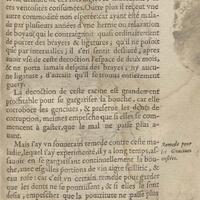 ces ventositez consumées. Outre plus il reçeut vne
autre commodité non esperée: car ayant esté malade
par plusieurs années d'vne hernie ou relaxation
de boyau; qui le contraignit quasi ordinairement
de porter des brayers & ligatures, qu'il ne posoit
que par interualles, il s'en sentit deslaué, apres
auoir vsé de ceste decoction l'espace de deux mois,
& ne porta iamais depuis des brayers, ny aucune
ligature, d'autant qu'il se trouua entierement
guery.
La decoction de ceste racine est grandement
profitable pour se gargariser la bouche, car elle
corrobore les genciues, & preserue les dents de
corruption, mesmes empesche que si elles se commencent
à gaster, que le mal ne passe plus auant.
Mais i'ay vn souuerain remede contre ceste maladie,
lequel i'ay experimenté il y a long temps, assauoir
en se gargarisant continuellement la bouche,
auec esgalles portions de vin aigre scillitic, &
eau rose: car c'est vn certain remede pour garder
que les dents ne se pourrissent, & si elles se sont
, empesche que la pourriture ne passe plus
Remede pour
les Genciues
enflées.